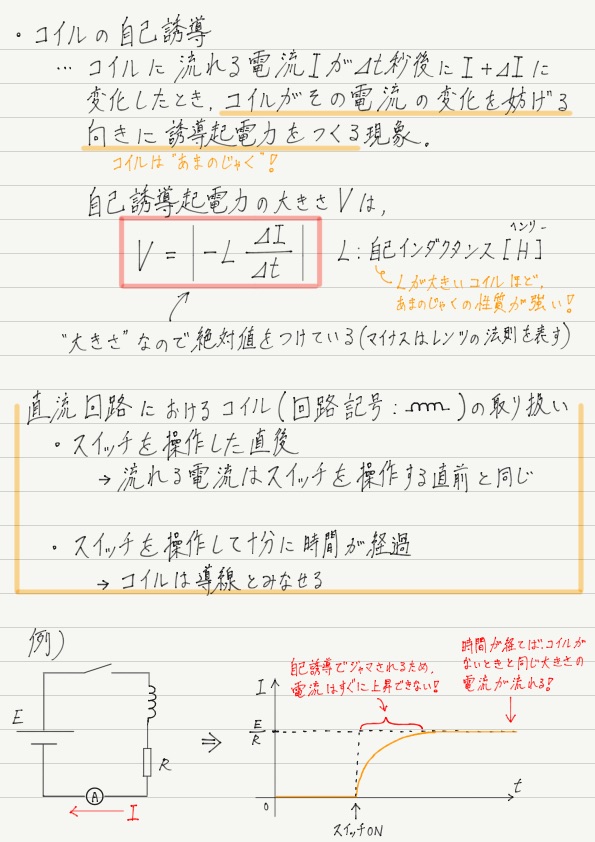 ・コイルの自己誘導
… コイルに流れる電流IがΔt秒後にI+ΔIに
変化したとき,コイルがその電流の変化を妨げる
向きに誘導起電力をつくる現象。
コイルは"あまのじゃく"!
自己誘導起電力の大きさVは,
V = |-L ΔI/Δt| L:自己インダクタンス[H]
ヘンリー
Lが大きいコイルほど,
あまのじゃくの性質が強い!
"大きさ"なので絶対値をつけている(マイナスはレンツの法則を表す)
直流回路におけるコイル(回路記号: )の取り扱い
・スイッチを操作した直後
→ 流れる電流はスイッチを操作する直前と同じ
・スイッチを操作して十分に時間が経過
→ コイルは導線とみなせる
例)
E
R
A
I
⇒
自己誘導でジャマされるため,
電流はすぐに上昇できない!
時間が経てば,コイルが
ないときと同じ大きさの
電流が流れる!
I
E/R
0
t
スイッチON